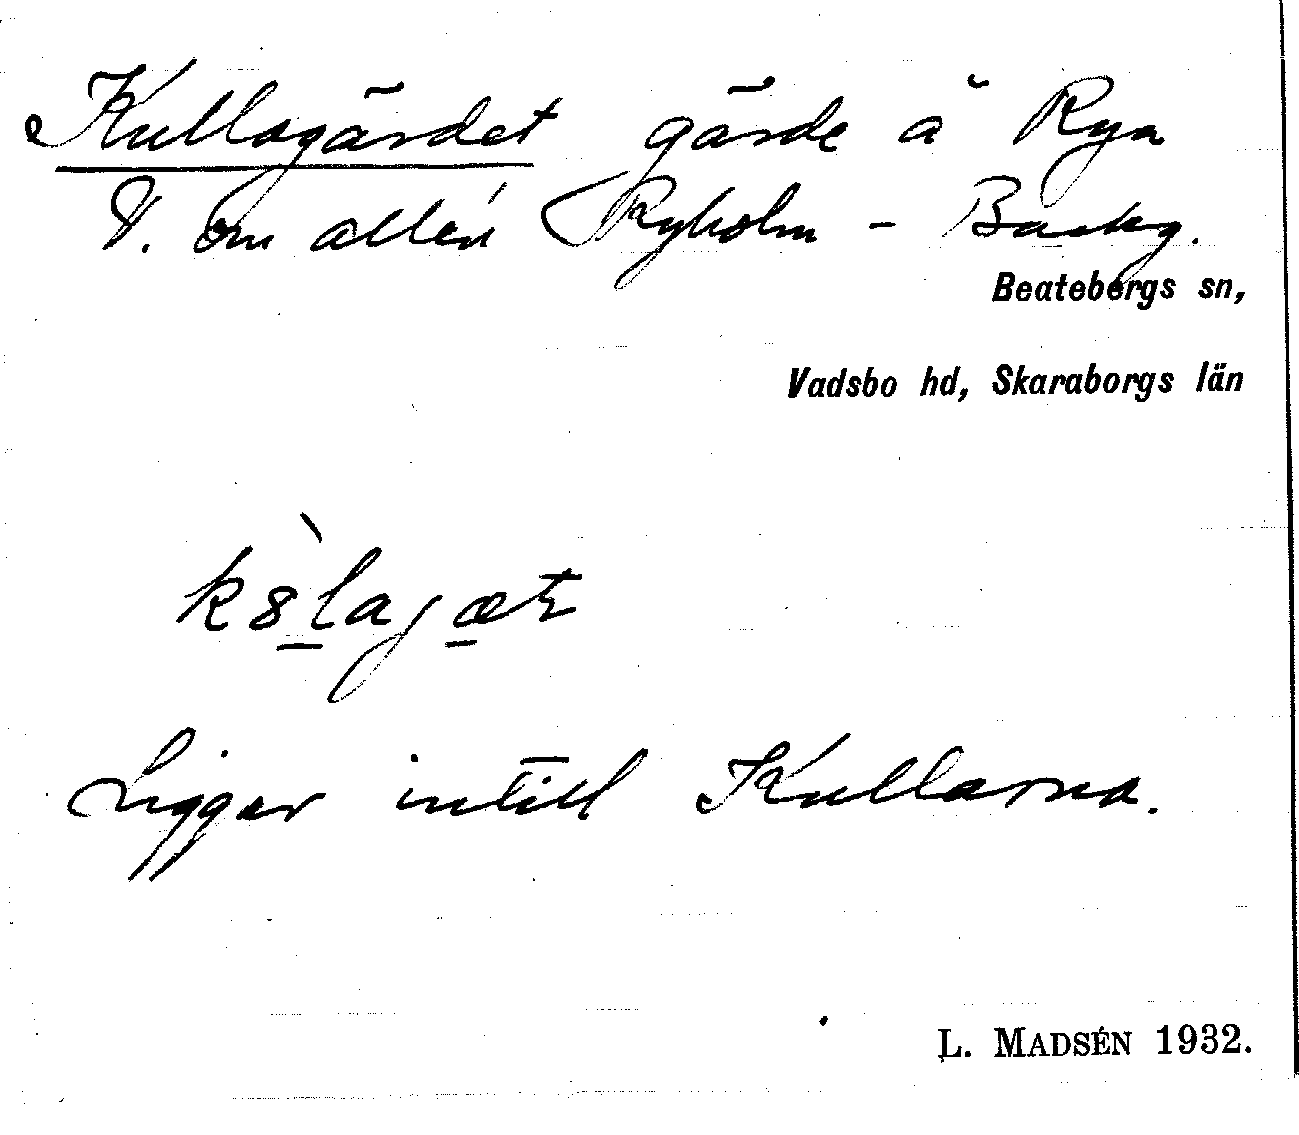 Kullagärdet gärde å Rya
V. om allén Ryholm –
Beatebergs sn,
Vadsbo hd, Skaraborgs län
Ligger intill Kullarna.
L. MADSÉN 1932.